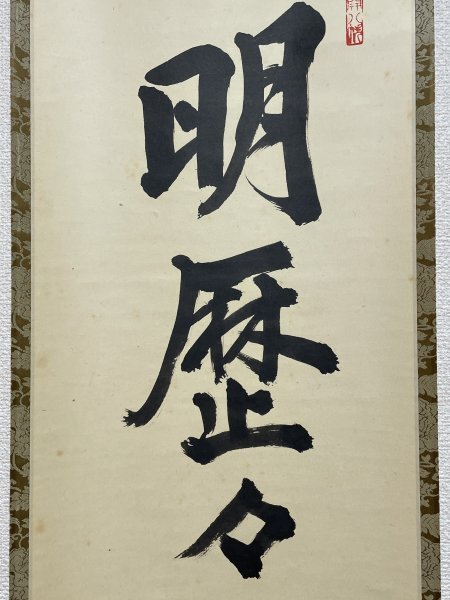 明歴々